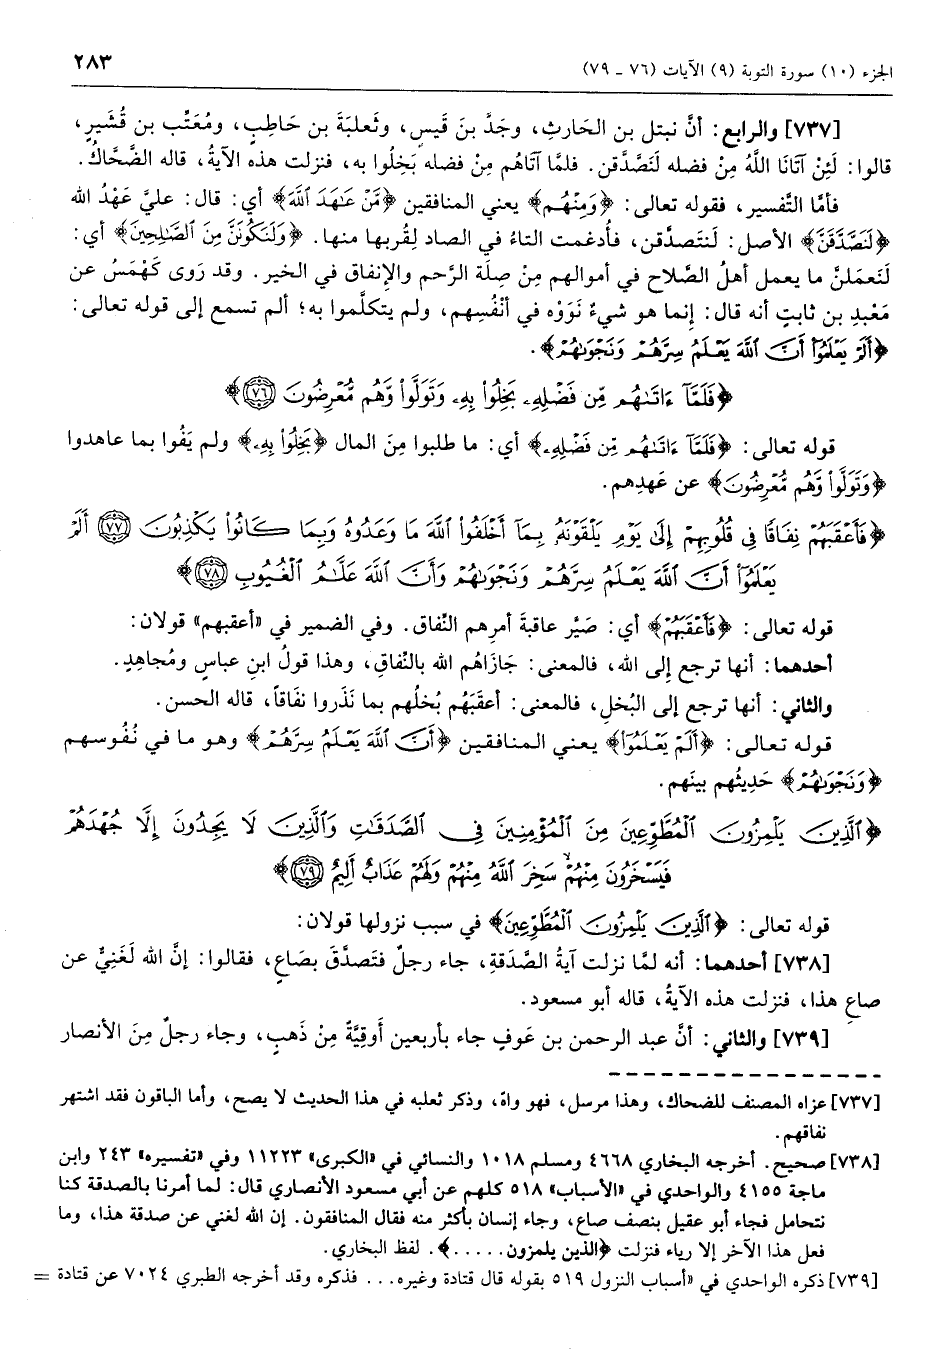 الجزء (١٠) سورة التوبة (٩) الآيات (٧٦ ـ ٧٩)
٢٨٣
[٧٣٧] والرابع: أنَّ نبتل بن الحَارثِ، وجَدَّ بنَ قَيسٍ، وثَعلبَةَ بن حَاطِبٍ، ومُعَتِّب بن قُشَيرٍ،
قالوا: لَئِنْ آتَانَا اللَّهُ مِنْ فضله لَنَصَّدَّقن. فلمَّا آتَاهُم مِنْ فضله بَخِلُوا به، فنزلت هذه الآيةُ، قاله الضَّحَّاكُ.
فأمَّا التَّفسير، فقوله تعالى: ﴿وَمِنْهُم﴾ يعني المنافقين ﴿مَّنْ عَٰهَدَ ٱللَّهَ﴾ أي: قال: عليَّ عَهْدُ الله
﴿لَنَصَّدَّقَنَّ﴾ الأصل: لَنتَصدَّقن، فأُدغمت التاءُ في الصاد لِقُربها منها. ﴿وَلَنَكُونَنَّ مِنَ ٱلصَّٰلِحِينَ﴾ أي:
لَنَعمَلنَّ ما يعمل أهلُ الصَّلاح في أموالهم مِنْ صِلَة الرَّحم والإنفاق في الخير. وقد رَوى كَهْمَسُ عن
مَعْبدِ بن ثابتٍ أنه قال: إنما هو شيءٌ نَوَوْه في أنْفُسِهم، ولم يتكلَّموا به؛ ألم تسمع إلى قوله تعالى:
﴿أَلَمْ يَعْلَمُوٓا۟ أَنَّ ٱللَّهَ يَعْلَمُ سِرَّهُمْ وَنَجْوَىٰهُمْ﴾.
﴿فَلَمَّآ ءَاتَىٰهُم مِّن فَضْلِهِۦ بَخِلُوا۟ بِهِۦ وَتَوَلَّوا۟ وَّهُم مُّعْرِضُونَ ﴿٧٦﴾﴾
قوله تعالى: ﴿فَلَمَّآ ءَاتَىٰهُم مِّن فَضْلِهِۦ﴾ أي: ما طلبوا مِنَ المال ﴿بَخِلُوا۟ بِهِۦ﴾ ولم يَفُوا بما عاهدوا
﴿وَتَوَلَّوا۟ وَّهُم مُّعْرِضُونَ﴾ عن عَهدِهم.
﴿فَأَعْقَبَهُمْ نِفَاقًا فِى قُلُوبِهِمْ إِلَىٰ يَوْمِ يَلْقَوْنَهُۥ بِمَآ أَخْلَفُوا۟ ٱللَّهَ مَا وَعَدُوهُ وَبِمَا كَانُوا۟ يَكْذِبُونَ ﴿٧٧﴾ أَلَمْ
يَعْلَمُوٓا۟ أَنَّ ٱللَّهَ يَعْلَمُ سِرَّهُمْ وَنَجْوَىٰهُمْ وَأَنَّ ٱللَّهَ عَلَّٰمُ ٱلْغُيُوبِ ﴿٧٨﴾﴾
قوله تعالى: ﴿فَأَعْقَبَهُمْ﴾ أي: صَيَّر عاقبةَ أمرِهم النِّفاق. وفي الضمير في «أعقبهم» قولان:
أحدهما: أنها ترجع إلى الله، فالمعنى: جَازَاهُم الله بالنِّفاقِ، وهذا قولُ ابنِ عباسٍ ومُجاهِدٍ.
والثاني: أنها ترجع إلى البُخلِ، فالمعنى: أعقَبَهُم بُخلُهم بما نَذَروا نفَاقاً، قاله الحسن.
قوله تعالى: ﴿أَلَمْ يَعْلَمُوٓا۟﴾ يعني المنافقين ﴿أَنَّ ٱللَّهَ يَعْلَمُ سِرَّهُمْ﴾ وهو ما في نُفُوسهم
﴿وَنَجْوَىٰهُمْ﴾ حَدِيثُهم بينَهم.
﴿ٱلَّذِينَ يَلْمِزُونَ ٱلْمُطَّوِّعِينَ مِنَ ٱلْمُؤْمِنِينَ فِى ٱلصَّدَقَٰتِ وَٱلَّذِينَ لَا يَجِدُونَ إِلَّا جُهْدَهُمْ
فَيَسْخَرُونَ مِنْهُمْ ۙ سَخِرَ ٱللَّهُ مِنْهُمْ وَلَهُمْ عَذَابٌ أَلِيمٌ ﴿٧٩﴾﴾
قوله تعالى: ﴿ٱلَّذِينَ يَلْمِزُونَ ٱلْمُطَّوِّعِينَ﴾ في سبب نزولها قولان:
[٧٣٨] أحدهما: أنه لمَّا نزلت آيةُ الصَّدَقةِ، جاء رجلٌ فتَصدَّقَ بصَاعٍ، فقالوا: إنَّ الله لَغَنِيٌّ عن
صاعِ هذا، فنزلت هذه الآيةُ، قاله أبو مسعود.
[٧٣٩] والثاني: أنَّ عبد الرحمن بن عَوفٍ جاء بأربعين أَوقِيَّةً مِنْ ذَهبٍ، وجاء رجلٌ مِنَ الأنصار
[٧٣٧] عزاه المصنف للضحاك، وهذا مرسل، فهو واهٍ، وذكر ثعلبه في هذا الحديث لا يصح، وأما الباقون فقد اشتهر
نفاقهم.
[٧٣٨] صحيح. أخرجه البخاري ٤٦٦٨ ومسلم ١٠١٨ والنسائي في «الكبرى» ١١٢٢٣ وفي «تفسيره» ٢٤٣ وابن
ماجة ٤١٥٥ والواحدي في «الأسباب» ٥١٨ كلهم عن أبي مسعود الأنصاري قال: لما أمرنا بالصدقة كنا
نتحامل فجاء أبو عقيل بنصف صاع، وجاء إنسان بأكثر منه فقال المنافقون. إن الله لغني عن صدقة هذا، وما
فعل هذا الآخر إلا رياء فنزلت ﴿الذين يلمزون.....﴾. لفظ البخاري.
[٧٣٩] ذكره الواحدي في «أسباب النزول ٥١٩ بقوله قال قتادة وغيره... فذكره وقد أخرجه الطبري ٧٠٢٤ عن قتادة =